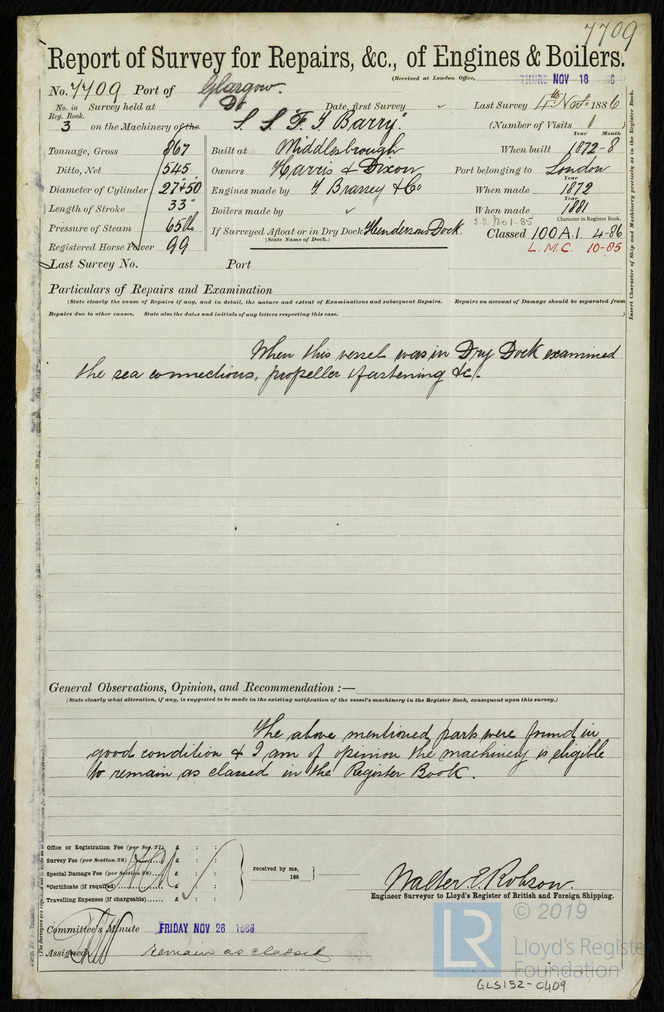 7709
Report of Survey for Repairs, &c., of Engines & Boilers.
(Received at London Office, THURS NOV 18 86)
No. 7709 Port of Glasgow.
No. in Reg. Book. Survey held at Do Date, first Survey " Last Survey 4th Novr. 1886
3 on the Machinery of the S.S. "F. T. Barry". (Number of Visits 1)
Tonnage, Gross 867 Built at Middlesbrough When built Year 1872 - Month 8
Ditto, Net 545 Owners Harris & Dixon Port belonging to London
Diameter of Cylinder 27+50 Engines made by T. Brassey & Co When made Year 1872
Length of Stroke 33" Boilers made by " When made Year 1881
Pressure of Steam 65 lb If Surveyed Afloat or in Dry Dock Hendersons Dock
(State Name of Dock.)
S.S. No 1-85 Character in Register Book.
Classed 100A.1 4-86
Registered Horse Power 99
L.M.C. 10-85
Last Survey No. Port
Particulars of Repairs and Examination
(State clearly the cause of Repairs if any, and in detail, the nature and extent of Examinations and subsequent Repairs. Repairs on account of Damage should be separated from
Repairs due to other causes. State also the dates and initials of any letters respecting this case. )
Insert Character of Ship and Machinery precisely as in the Register Book.
When this vessel was in Dry Dock examined
the sea connections, propeller & fastening &c.
General Observations, Opinion, and Recommendation :—
(State clearly what alteration, if any, is suggested to be made in the existing notification of the vessel's machinery in the Register Book, consequent upon this survey.)
The above mentioned parts were found in
good condition & I am of opinion the machinery is eligible
to remain as classed in the Register Book.
Office or Registration Fee (per Sec. 27) £ : :
Survey Fee (per Section 28) £ : :
Special Damage Fee (per Section 28) £ : :
*Certificate (if required) £ : :
Travelling Expenses (if chargeable) £ : :
received by me,
188
Walter E. Robson.
Engineer Surveyor to Lloyd's Register of British and Foreign Shipping.
Committee's Minute FRIDAY NOV 26 1886
Assigned Remain as classed
© 2019
LR
Lloyd's Register
Foundation
GLS152-0409